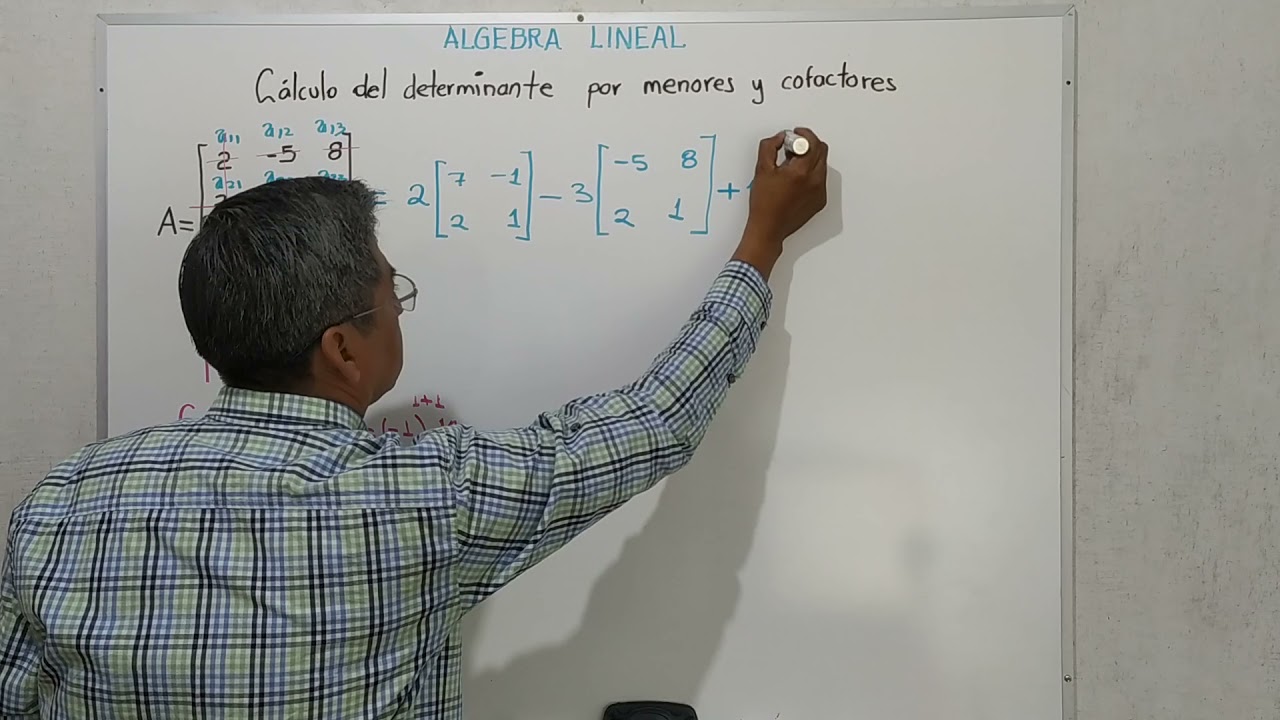 ALGEBRA LINEAL
Cálculo del determinante por menores y cofactores
a11 a12 a13
2 -5 8
a21
A=
= 2[7 -1 - 3[-5 8 +
2 1] 2 1]
1+1
(-1)